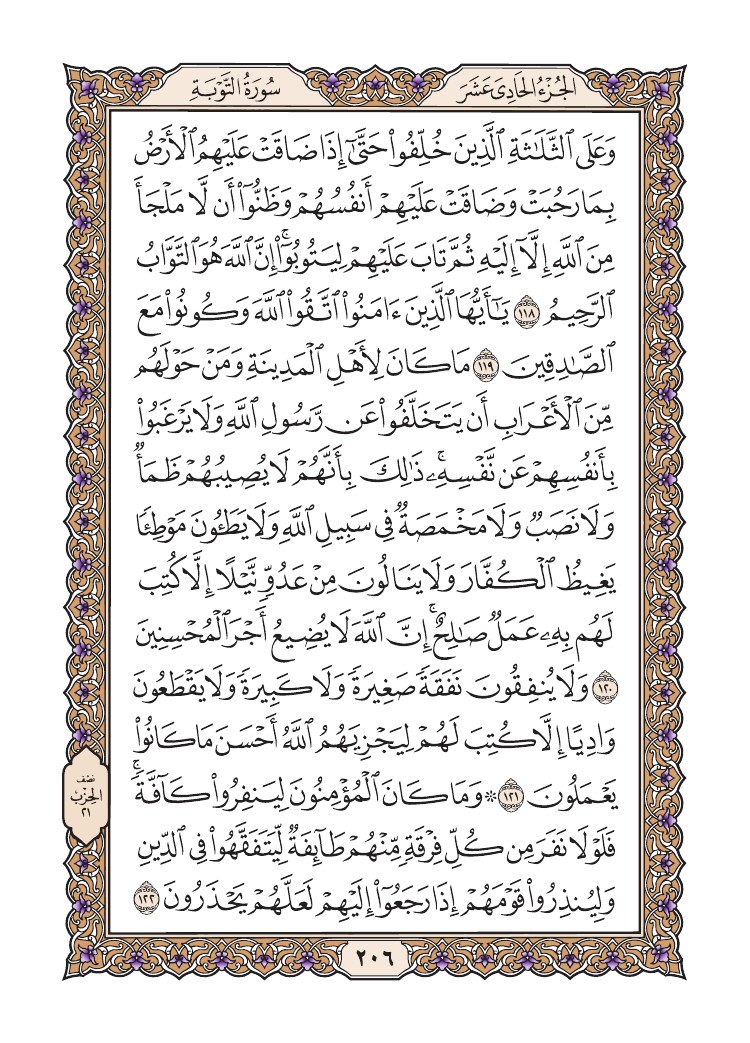 الجُزْءُ الحَادِىَ عَشَرَ
سُورَةُ التَّوْبَةِ
وَعَلَى ٱلثَّلَٰثَةِ ٱلَّذِينَ خُلِّفُوا۟ حَتَّىٰٓ إِذَا ضَاقَتْ عَلَيْهِمُ ٱلْأَرْضُ
بِمَا رَحُبَتْ وَضَاقَتْ عَلَيْهِمْ أَنفُسُهُمْ وَظَنُّوٓا۟ أَن لَّا مَلْجَأَ
مِنَ ٱللَّهِ إِلَّآ إِلَيْهِ ثُمَّ تَابَ عَلَيْهِمْ لِيَتُوبُوٓا۟ۚ إِنَّ ٱللَّهَ هُوَ ٱلتَّوَّابُ
ٱلرَّحِيمُ ١١٨ يَٰٓأَيُّهَا ٱلَّذِينَ ءَامَنُوا۟ ٱتَّقُوا۟ ٱللَّهَ وَكُونُوا۟ مَعَ
ٱلصَّٰدِقِينَ ١١٩ مَا كَانَ لِأَهْلِ ٱلْمَدِينَةِ وَمَنْ حَوْلَهُم
مِّنَ ٱلْأَعْرَابِ أَن يَتَخَلَّفُوا۟ عَن رَّسُولِ ٱللَّهِ وَلَا يَرْغَبُوا۟
بِأَنفُسِهِمْ عَن نَّفْسِهِۦۚ ذَٰلِكَ بِأَنَّهُمْ لَا يُصِيبُهُمْ ظَمَأٌ
وَلَا نَصَبٌ وَلَا مَخْمَصَةٌ فِى سَبِيلِ ٱللَّهِ وَلَا يَطَـُٔونَ مَوْطِئًا
يَغِيظُ ٱلْكُفَّارَ وَلَا يَنَالُونَ مِنْ عَدُوٍّ نَّيْلًا إِلَّا كُتِبَ
لَهُم بِهِۦ عَمَلٌ صَٰلِحٌۚ إِنَّ ٱللَّهَ لَا يُضِيعُ أَجْرَ ٱلْمُحْسِنِينَ
١٢٠ وَلَا يُنفِقُونَ نَفَقَةً صَغِيرَةً وَلَا كَبِيرَةً وَلَا يَقْطَعُونَ
وَادِيًا إِلَّا كُتِبَ لَهُمْ لِيَجْزِيَهُمُ ٱللَّهُ أَحْسَنَ مَا كَانُوا۟
يَعْمَلُونَ ١٢١ ۞ وَمَا كَانَ ٱلْمُؤْمِنُونَ لِيَنفِرُوا۟ كَآفَّةًۚ
فَلَوْلَا نَفَرَ مِن كُلِّ فِرْقَةٍ مِّنْهُمْ طَآئِفَةٌ لِّيَتَفَقَّهُوا۟ فِى ٱلدِّينِ
وَلِيُنذِرُوا۟ قَوْمَهُمْ إِذَا رَجَعُوٓا۟ إِلَيْهِمْ لَعَلَّهُمْ يَحْذَرُونَ ١٢٢
نصف
الحزب
٢١
٢٠٦